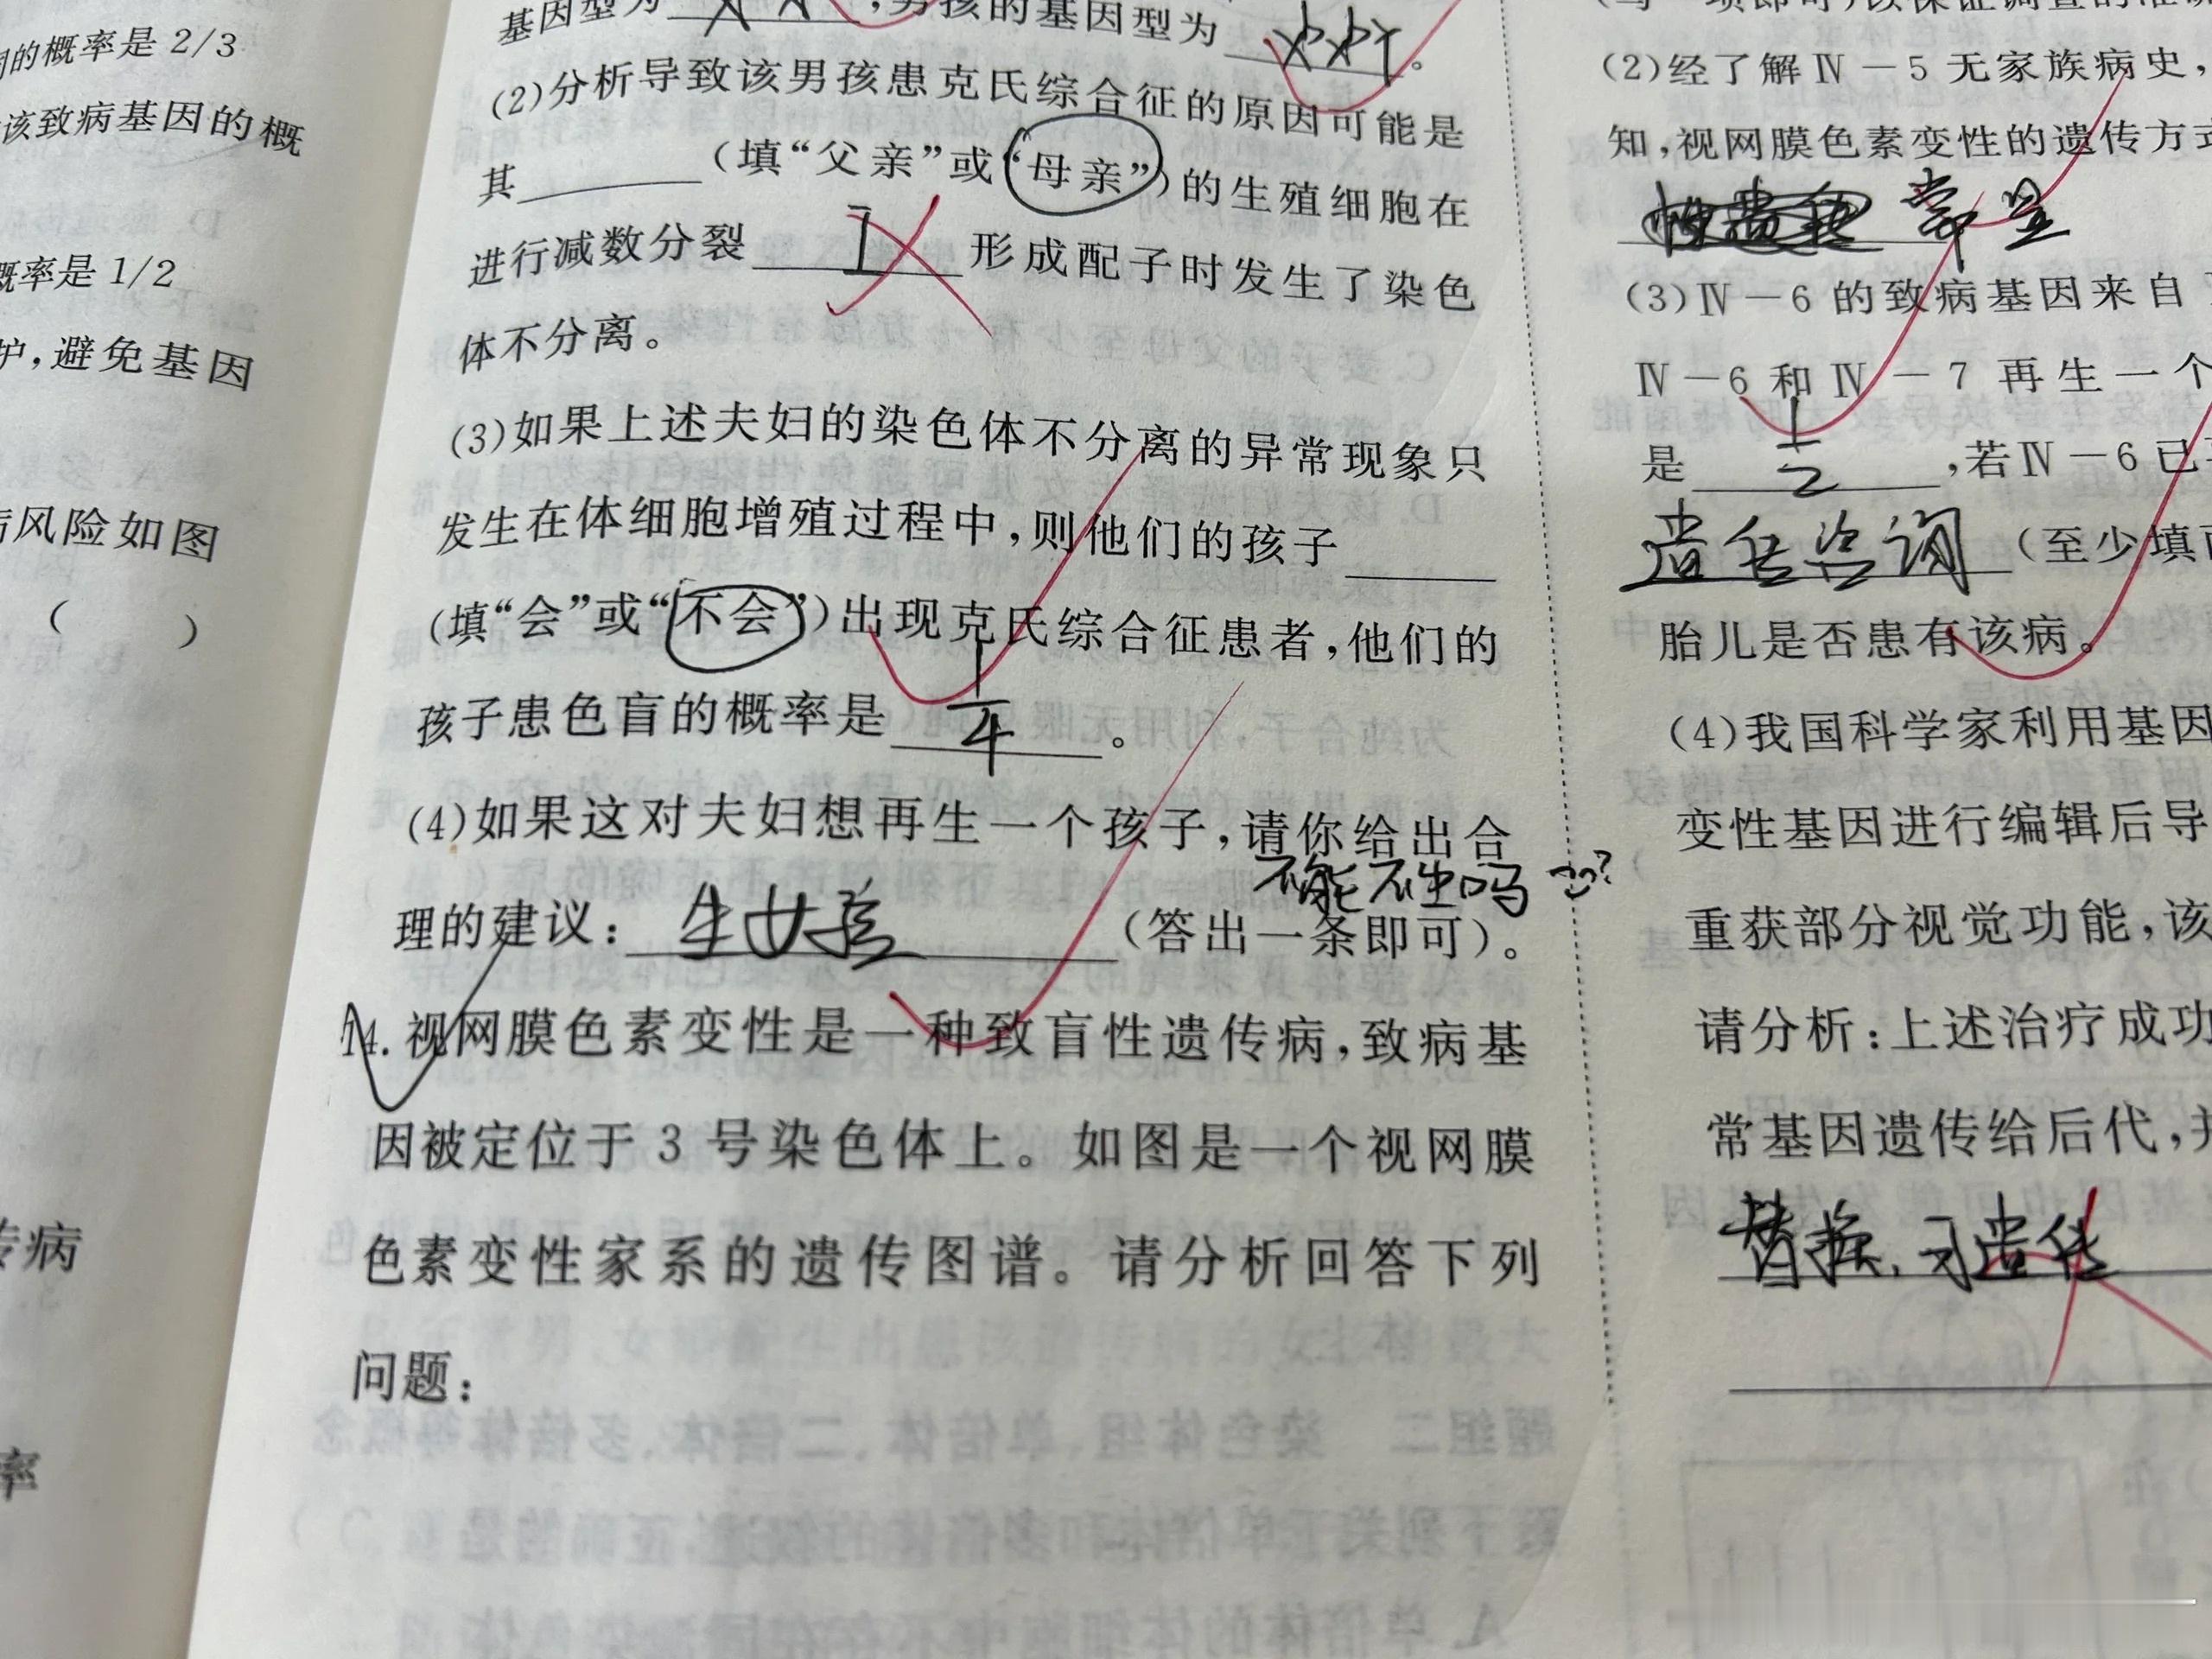 的概率是 2/3
该致病基因的概
概率是 1/2
护，避免基因
风险如图
（ ）
传病
率
基因型为 ，男孩的基因型为 XᵇXᵇY 。
(2)分析导致该男孩患克氏综合征的原因可能是
其______（填“父亲”或“母亲”）的生殖细胞在
进行减数分裂 I 形成配子时发生了染色
体不分离。
(3)如果上述夫妇的染色体不分离的异常现象只
发生在体细胞增殖过程中，则他们的孩子______
（填“会”或“不会”）出现克氏综合征患者，他们的
孩子患色盲的概率是 1/4 。
(4)如果这对夫妇想再生一个孩子，请你给出合
不能不生吗
理的建议： 生女孩 （答出一条即可）。
14. 视网膜色素变性是一种致盲性遗传病，致病基
因被定位于 3 号染色体上。如图是一个视网膜
色素变性家系的遗传图谱。请分析回答下列
问题：
(2)经了解Ⅳ－5 无家族病史，
知，视网膜色素变性的遗传方式
常 显
(3)Ⅳ－6 的致病基因来自
Ⅳ－6 和 Ⅳ－7 再生一个
是 1/2 ，若Ⅳ－6 已
遗传咨询 （至少填
胎儿是否患有该病。
(4)我国科学家利用基因
变性基因进行编辑后导
重获部分视觉功能，该
请分析：上述治疗成功
常基因遗传给后代，并
替换，可遗传